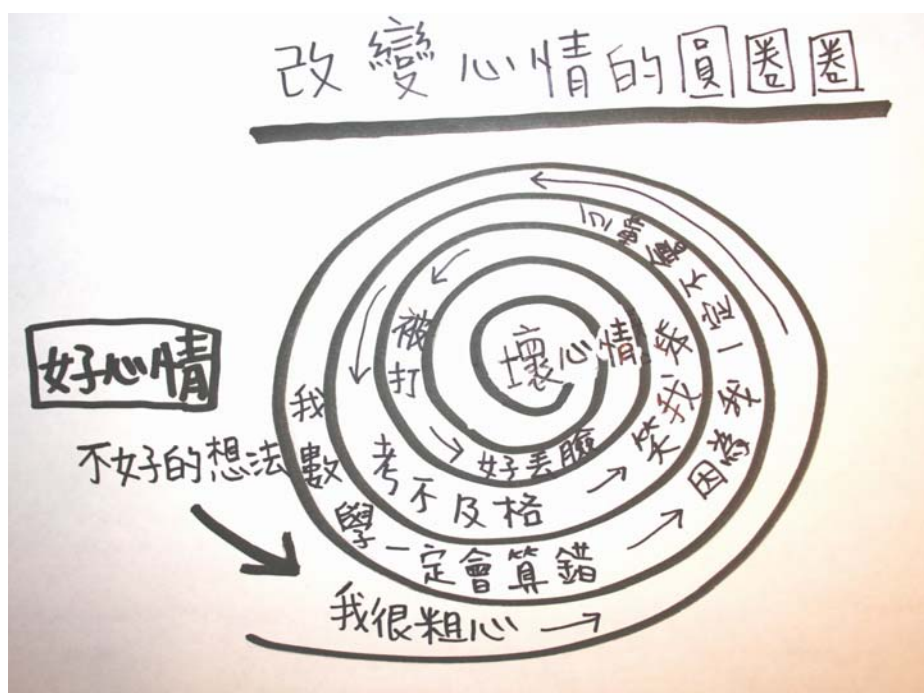 改變心情的圓圈圈
好心情
不好的想法
我很粗心 →
我數學一定會算錯 → 因為我一定不會專心
考不及格 → 笑我笨
被打 → 好丟臉
壞心情